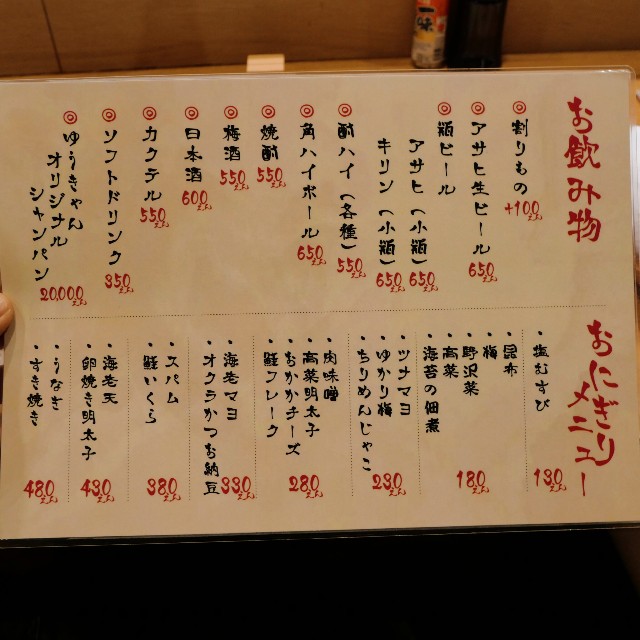 一味
お飲み物
◎割りもの +100
◎アサヒ生ビール 650えん
◎瓶ビール
アサヒ(小瓶) 650えん
キリン(小瓶) 650えん
◎酎ハイ(各種) 550えん
◎角ハイボール 650えん
◎焼酎 550えん
◎梅酒 550えん
◎日本酒 600えん
◎カクテル 550えん
◎ソフトドリンク 350えん
◎ゆうきゃん
オリジナル
シャンパン
20,000えん
おにぎり
メニュー
・塩むすび
130えん
・昆布
・梅
・野沢菜
・高菜
・海苔の佃煮
180えん
・ツナマヨ
・ゆかり梅
・ちりめんじゃこ
230えん
・肉味噌
・高菜明太子
・おかかチーズ
・鮭フレーク
280えん
・海老マヨ
・オクラかつお納豆
330えん
・スパム
・鮭いくら
380えん
・海老天
・卵焼き明太子
430えん
・うなぎ
・すき焼き
480えん